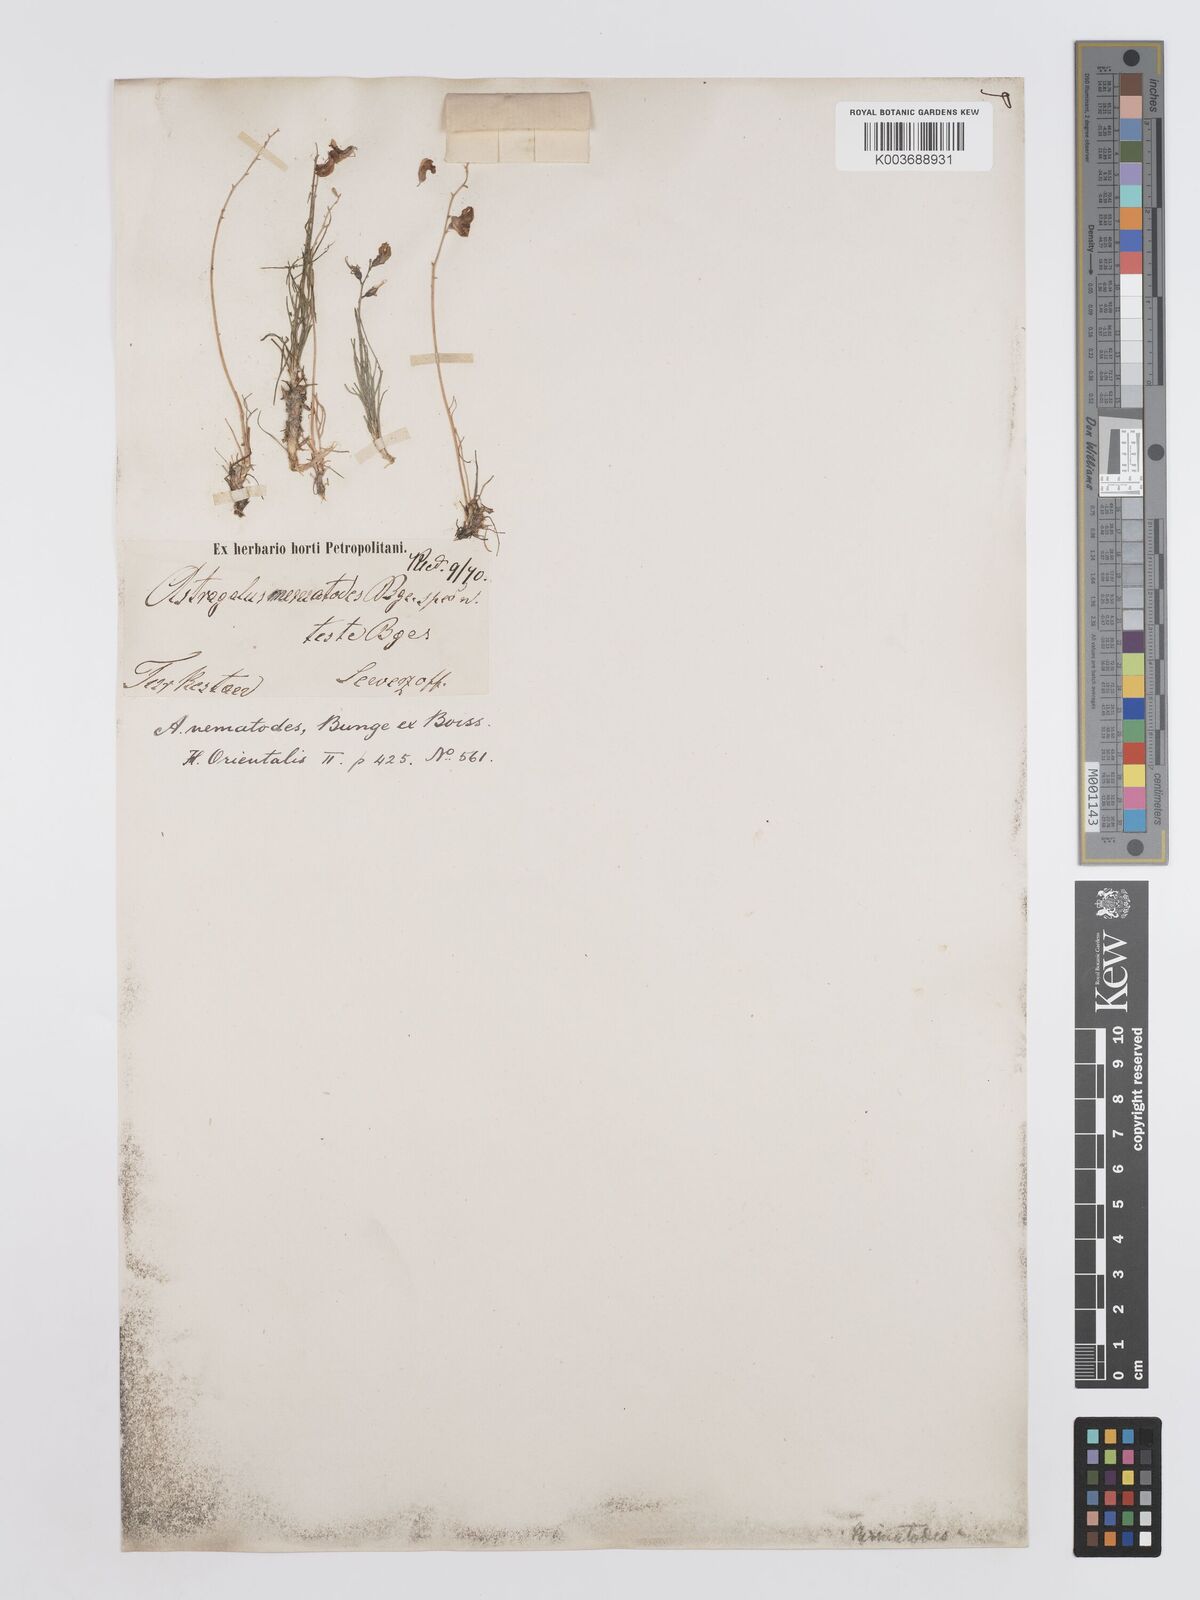 ROYAL BOTANIC GARDENS KEW
K003688931
Ex herbario horti Petropolitani.
Red. 9/70.
Astragalus nematodes Bge. spec n.
teste Bge
Turkestan Sewerzoff.
A. nematodes, Bunge ex Boiss.
Fl. Orientalis II. p 425. No 561.
nematodes
inches
Density
Don Williams
centimeters
M001143
Royal Botanic Gardens
Kew
copyright reserved
0 1 2 3 4 5 6 7 8 9 10
cm